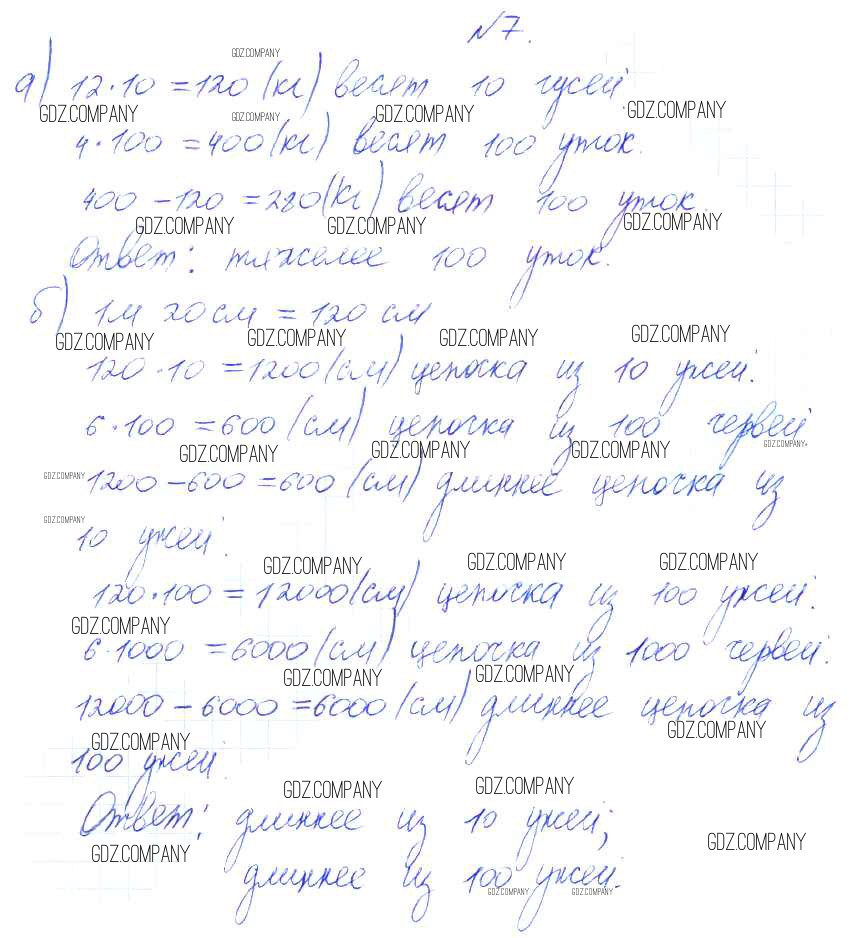 №7.
GDZ.COMPANY
а) 12·10 =120 (кг) весят 10 гусей.
GDZ.COMPANY GDZ.COMPANY GDZ.COMPANY GDZ.COMPANY
4·100 =400 (кг) весят 100 уток.
400 -120 =280(кг) весят 100 уток.
GDZ.COMPANY GDZ.COMPANY GDZ.COMPANY
Ответ: тяжелее 100 уток.
б) 1м 20см = 120 см
GDZ.COMPANY GDZ.COMPANY GDZ.COMPANY GDZ.COMPANY
120·10 =1200 (см) цепочка из 10 ужей.
6·100 =600 (см) цепочка из 100 червей
GDZ.COMPANY GDZ.COMPANY GDZ.COMPANY GDZ.COMPANY
GDZ.COMPANY 1200 -600 =600 (см) длиннее цепочка из
GDZ.COMPANY
10 ужей.
GDZ.COMPANY GDZ.COMPANY GDZ.COMPANY
120·100 = 12000(см) цепочка из 100 ужей.
GDZ.COMPANY
6·1000 =6000 (см) цепочка из 1000 червей.
GDZ.COMPANY GDZ.COMPANY
12000 - 6000 =6000 (см) длиннее цепочка из
GDZ.COMPANY
GDZ.COMPANY
100 ужей.
GDZ.COMPANY GDZ.COMPANY
Ответ: длиннее из 10 ужей;
GDZ.COMPANY GDZ.COMPANY
длиннее из 100 ужей.
GDZ.COMPANY GDZ.COMPANY